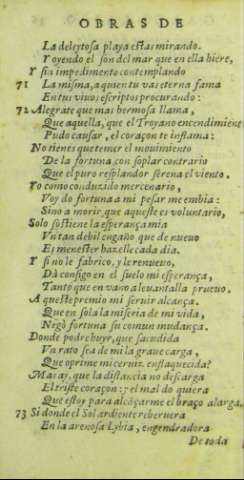 OBRAS DE
La deleytosa playa estas mirando.
Y oyendo el son del mar que en ella hiere,
Y sin impedimento contemplando
71 La misma, a quien tu vas eterna fama
En tus viuos escriptos procurando:
72 Alegrate que mas hermosa llama,
Que aquella, que el Troyano encendimiento
Pudo causar, el coraçon te inflama:
No tienes que temer el mouimiento
De la fortuna con soplar contrario
Que el puro resplandor serena el viento.
Yo como conduzido mercenario,
Voy do fortuna a mi pesar me embia:
Sino a morir, que aqueste es voluntario,
Solo sostiene la esperança mia
Vn tan debil engaño que de nueuo
Es menester hazelle cada dia.
Y si no le fabrico, y le renueuo,
Dà consigo en el suelo mi esperança,
Tanto que en vano a leuantalla prueuo.
A queste premio mi seruir alcança.
Que en sola la miseria de mi vida,
Negò fortuna su comun mudança.
Donde podre huyr, que sacudida
Vn rato sea de mi la graue carga,
Que oprime mi ceruiz enflaquecida?
Mas ay, que la distancia no descarga
El triste coraçon: y el mal do quiera
Que estoy para alcãçarme el braço alarga.
73 Si donde el Sol ardiente reberuera
En la arenosa Lybia, engendradora
De toda